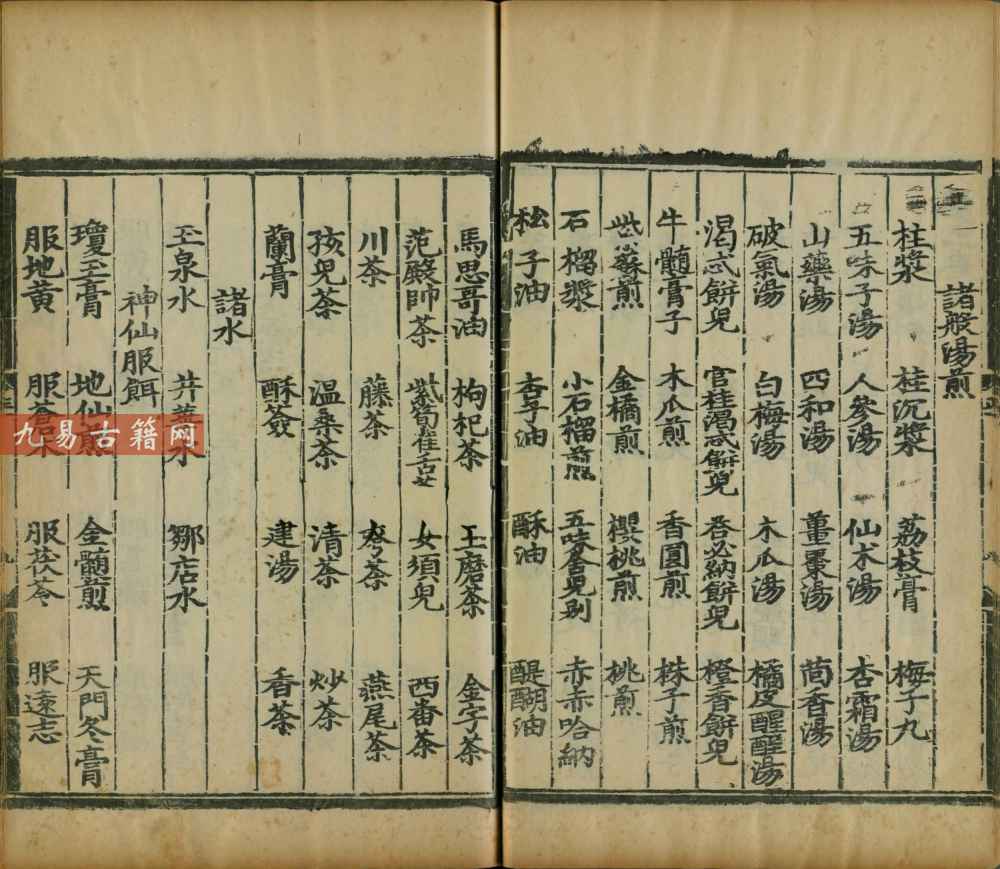 諸般湯煎
桂漿 桂沉漿 荔枝膏 梅子丸
五味子湯 人參湯 仙术湯 杏霜湯
山藥湯 四和湯 棗湯 茴香湯
破氣湯 白梅湯 木瓜湯 橘皮醒酲湯
渴忒餅兒 官桂渴忒餅兒 荅必納餅兒 橙香餅兒
牛髓膏子 木瓜煎 香圓煎 株子煎
紫蘇煎 金橘煎 櫻桃煎 桃煎
石榴漿 小石榴煎 五味舍兒别 赤赤哈納
松子油 杏子油 酥油 醍醐油
馬思哥油 枸杞茶 玉磨茶 金字茶
范殿帥茶 紫筍雀舌茶 女須兒 西番茶
川茶 藤茶 夸茶 燕尾茶
孩兒茶 溫桑茶 清茶 炒茶
蘭膏 酥簽 建湯 香茶
諸水
玉泉水 井華水 鄒店水
神仙服餌
瓊玉膏 地仙煎 金髓煎 天門冬膏
服地黄 服蒼术 服茯苓 服遠志
九易古籍网